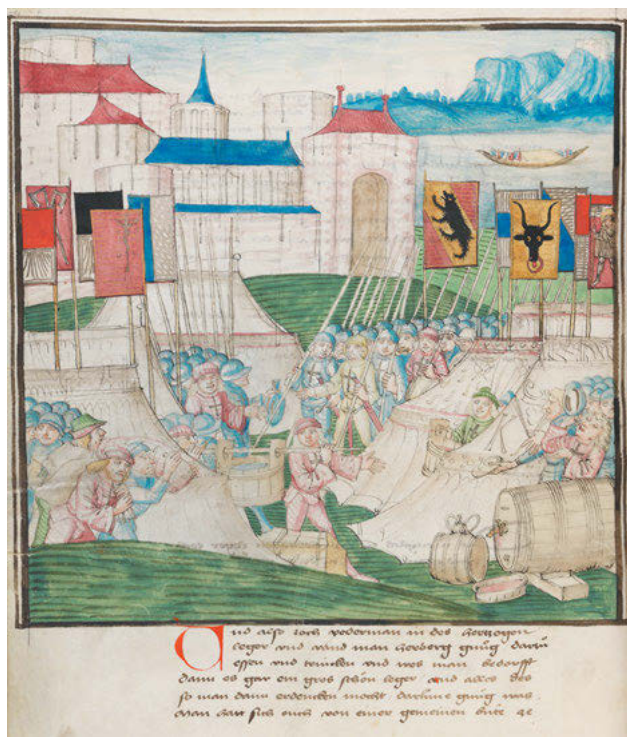 Und also zoch yederman in des hertzogen
leger und vand man herberg gnůg darin
essen und trincken und wes man bedorfft
dann es gar ein gros schön leger und alles des
so man dann erdencken mocht darinne gnůg was
Man hatt sich ouch von einer gemeinen büte ze